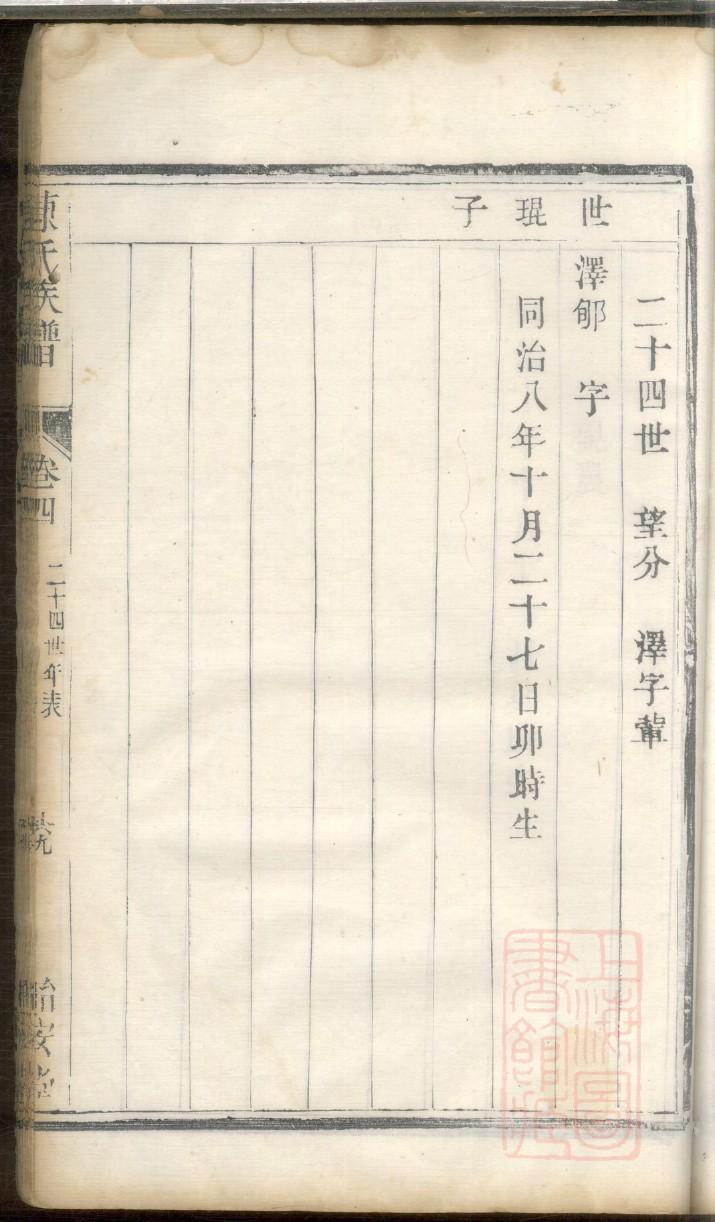 二十四世　望分　澤字輩
世琨子
澤郇　字
同治八年十月二十七日卯時生
陳氏族譜
卷四
二十四世年表
上海圖書館藏